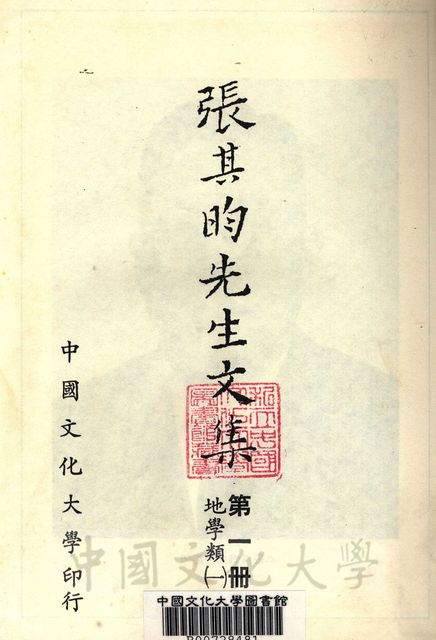 張其昀先生文集
第一冊
地學類(一)
中國文化大學印行
中國文化大學
中國文化大學圖書館